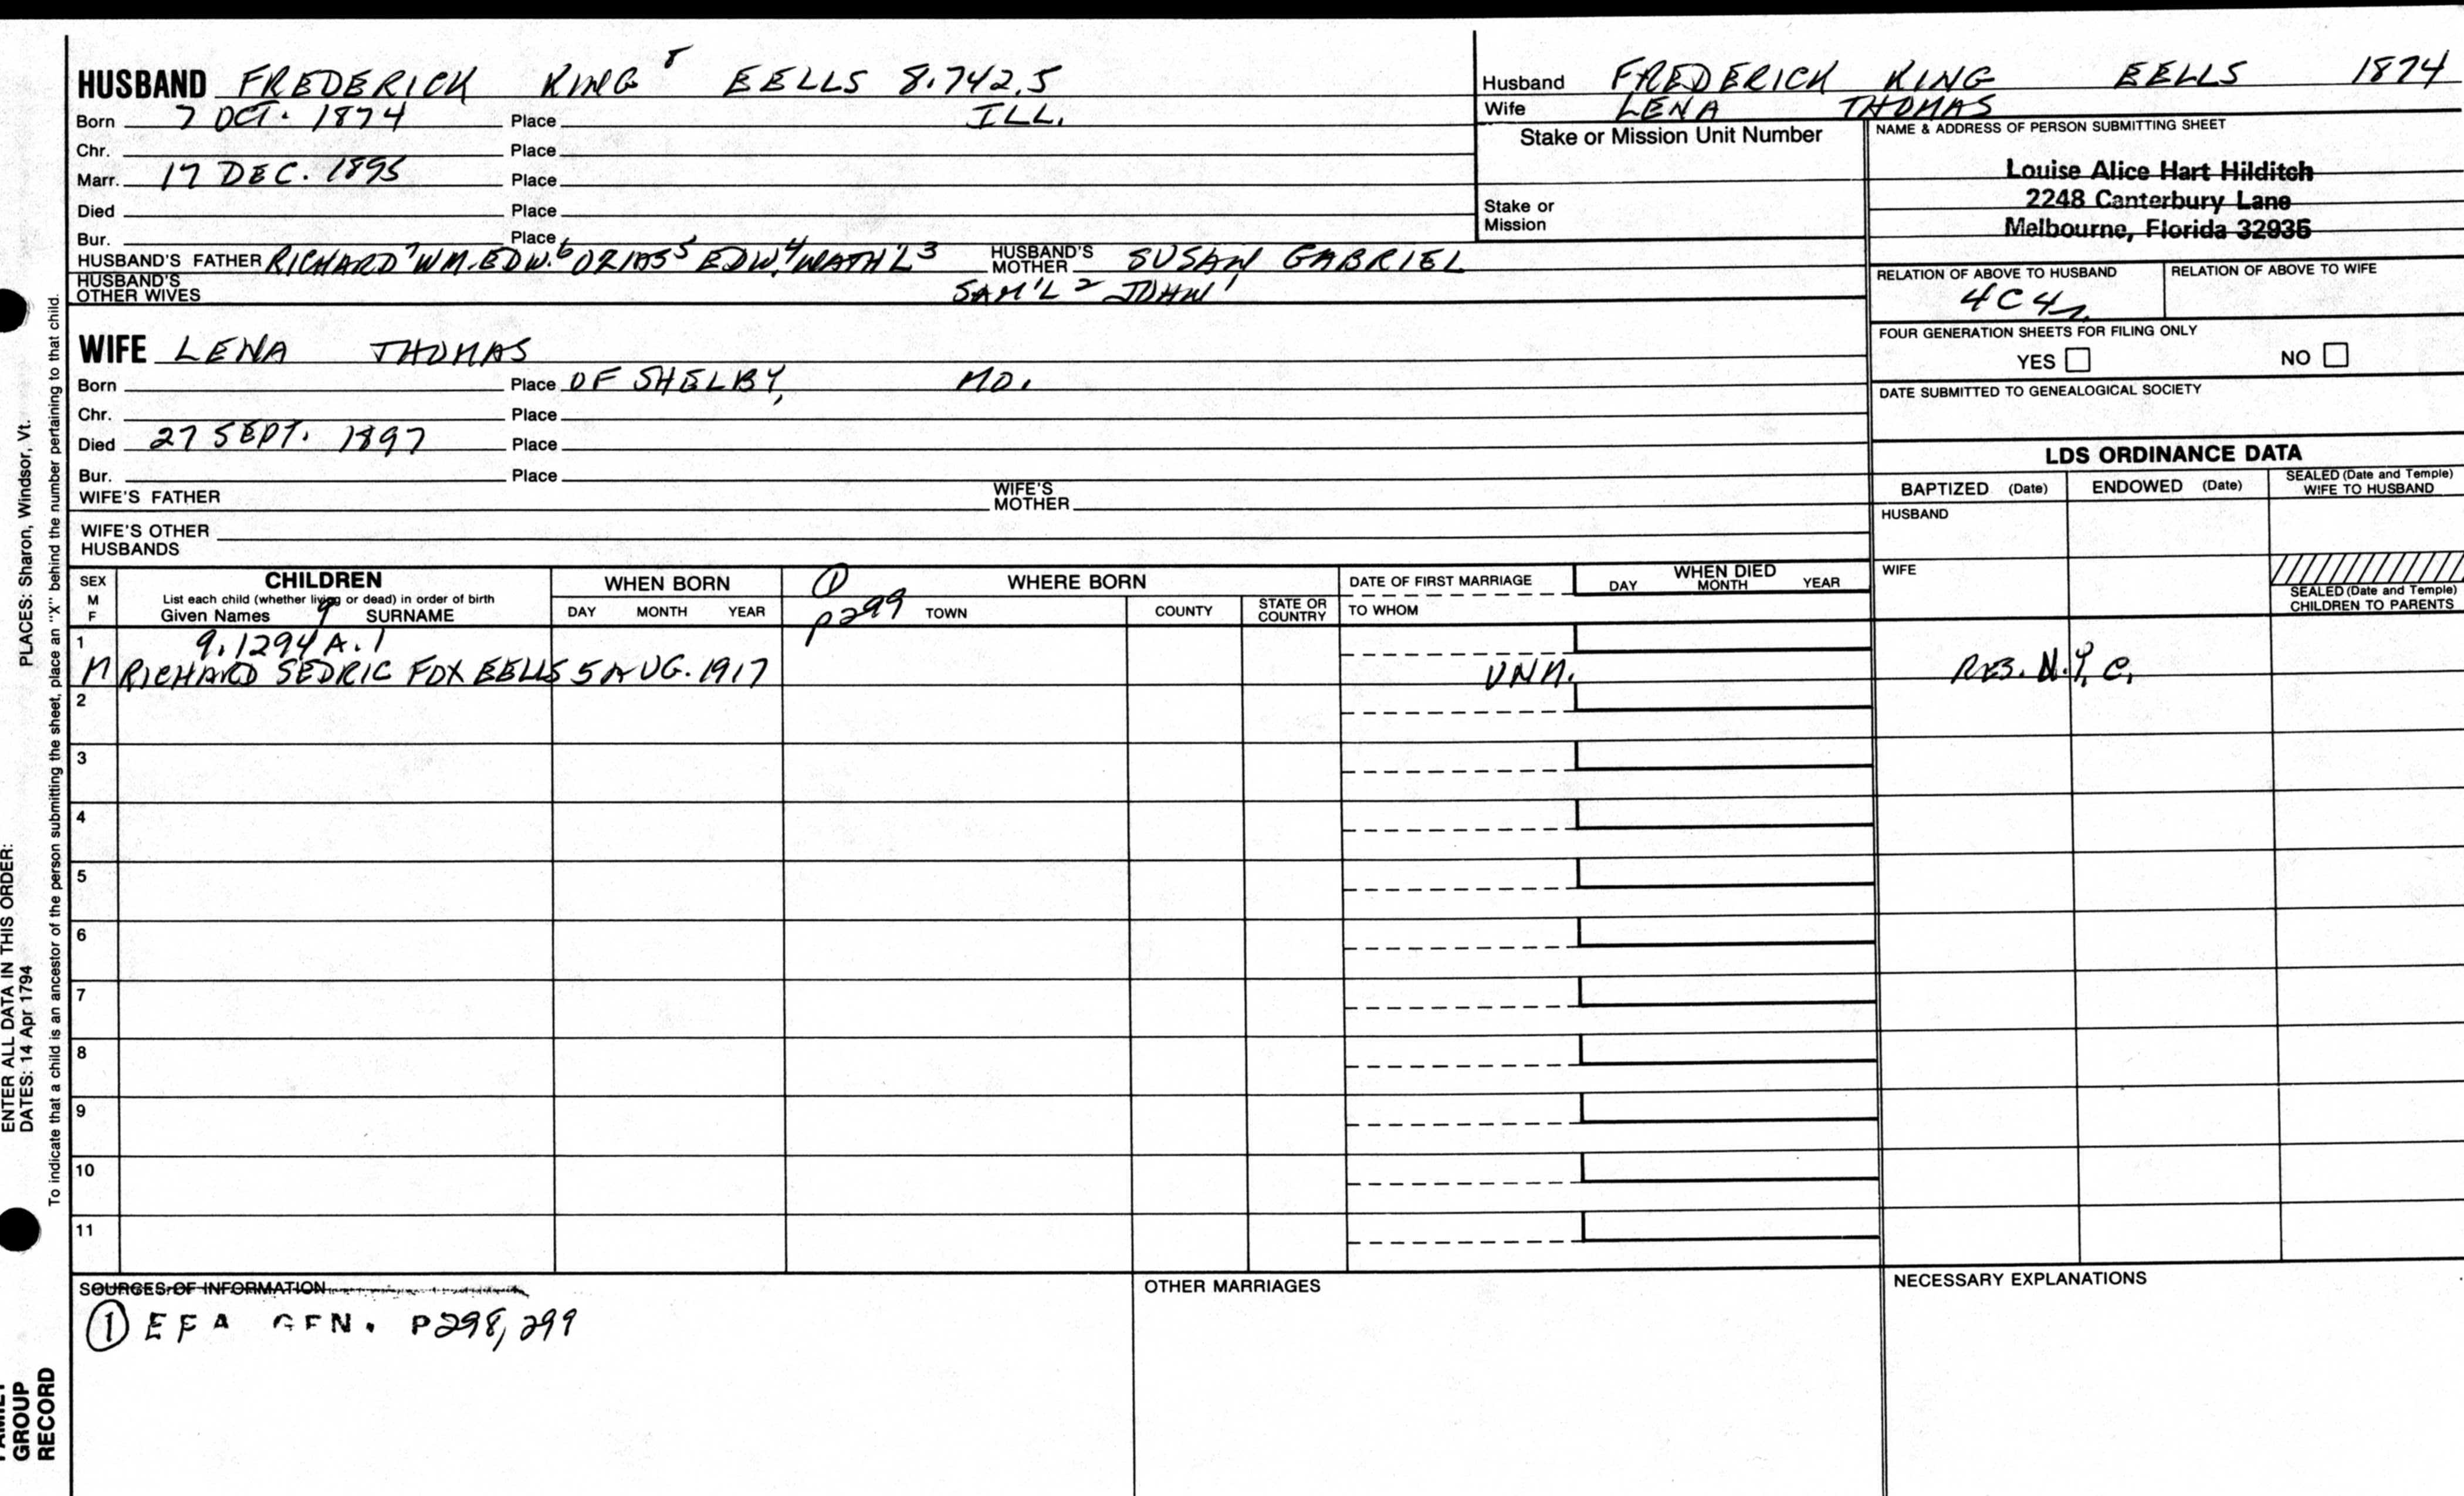 HUSBAND FREDERICK KING 8 EELLS 8.742.5
Born 7 OCT. 1874 Place ILL.
Chr. Place
Marr. 17 DEC. 1895 Place
Died Place
Bur. Place
HUSBAND'S FATHER RICHARD 7 WM. EDW. 6 OZIAS 5 EDW. 4 NATH'L 3 HUSBAND'S MOTHER SUSAN GABRIEL
HUSBAND'S OTHER WIVES SAM'L 2 JOHN 1
WIFE LENA THOMAS
Born Place OF SHELBY, MO.
Chr. Place
Died 27 SEPT. 1897 Place
Bur. Place
WIFE'S FATHER WIFE'S MOTHER
WIFE'S OTHER HUSBANDS
Husband FREDERICK KING EELLS 1874
Wife LENA THOMAS
Stake or Mission Unit Number
Stake or Mission
NAME & ADDRESS OF PERSON SUBMITTING SHEET
Louise Alice Hart Hilditch
2248 Canterbury Lane
Melbourne, Florida 32935
RELATION OF ABOVE TO HUSBAND RELATION OF ABOVE TO WIFE
4C4
FOUR GENERATION SHEETS FOR FILING ONLY
YES NO
DATE SUBMITTED TO GENEALOGICAL SOCIETY
LDS ORDINANCE DATA
BAPTIZED (Date) ENDOWED (Date) SEALED (Date and Temple) WIFE TO HUSBAND
HUSBAND
WIFE
SEALED (Date and Temple) CHILDREN TO PARENTS
SEX M F CHILDREN WHEN BORN ① WHERE BORN DATE OF FIRST MARRIAGE WHEN DIED
List each child (whether living or dead) in order of birth
Given Names 9 SURNAME DAY MONTH YEAR p299 TOWN COUNTY STATE OR COUNTRY TO WHOM DAY MONTH YEAR
1 9.1294A.1
M RICHARD SEDRIC FOX EELLS 5 AUG. 1917 UNM. RES. N.Y.C.
2
3
4
5
6
7
8
9
10
11
SOURCES OF INFORMATION OTHER MARRIAGES NECESSARY EXPLANATIONS
① EFA GEN. P298, 299
PLACES: Sharon, Windsor, Vt.
To indicate that a child is an ancestor of the person submitting the sheet, place an "X" behind the number pertaining to that child.
ENTER ALL DATA IN THIS ORDER:
DATES: 14 Apr 1794
FAMILY GROUP RECORD